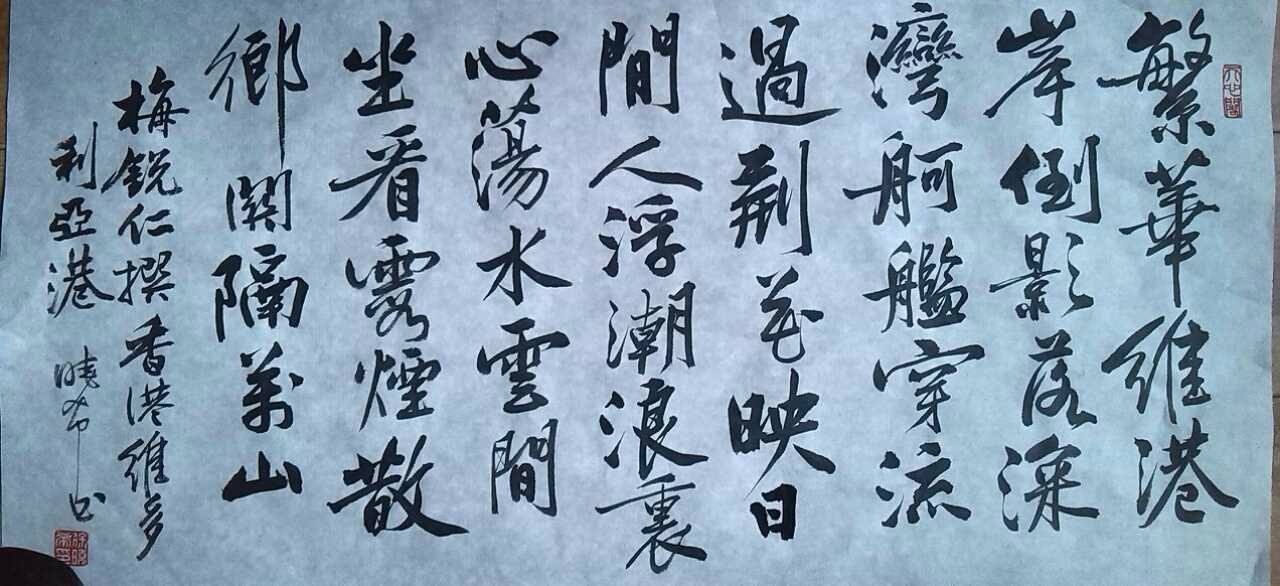 繁華維港
岸倒影落深
灣舸艦穿流
過荆花映日
間人浮潮浪裏
心蕩水雲間
坐看雾煙散
鄉關隔萬山
梅銳仁撰香港維多
利亞港 曉帝书